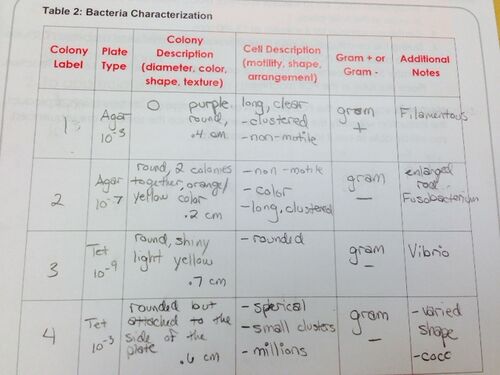 Table 2: Bacteria Characterization
Colony Label
Plate Type
Colony Description (diameter, color, shape, texture)
Cell Description (motility, shape, arrangement)
Gram + or Gram -
Additional Notes
1
Agar
10-3
purple
round,
.4 cm
long, clear
- clustered
- non-motile
gram
+
Filamentous
2
Agar
10-7
round, 2 colonies
together, orange/
yellow color
.2 cm
- non-motile
- color
- long, clustered
gram
-
enlarged
rod
Fusobacterium
3
Tet
10-9
round, shiny
light yellow
.7 cm
- rounded
gram
-
Vibrio
4
Tet
10-3
rounded but
attached to the
side of the
plate
.6 cm
- sperical
- small clusters
- millions
gram
-
- varied
shape
- cocc